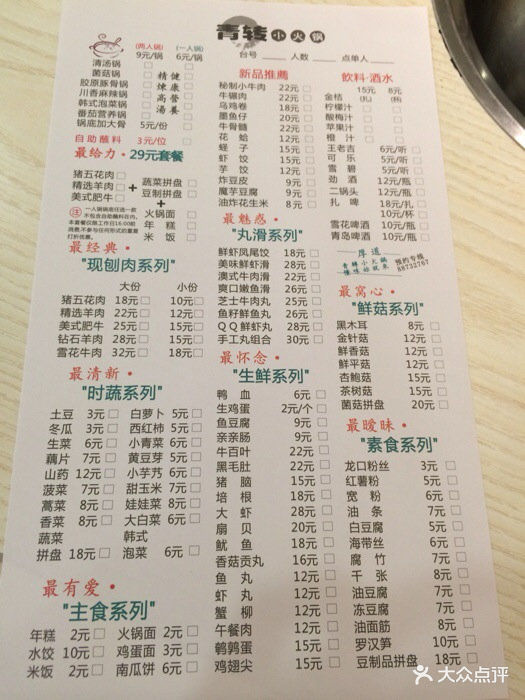 青转小火锅
台号 人数 点单人
(两人锅) (一人锅)
9元/锅 6元/锅
清汤锅
菌菇锅
胶原豚骨锅
川香麻辣锅
韩式泡菜锅
番茄营养锅
锅底加大骨 5元/份
精健
炖康
高营
汤养
自助蘸料 3元/位
最给力·29元套餐
猪五花肉
精选羊肉
美式肥牛
+
蔬菜拼盘
豆制拼盘
+
火锅面
年糕
米饭
注
最经典·
"现刨肉系列"
大份 小份
猪五花肉 18元 10元
精选羊肉 22元 12元
美式肥牛 25元 15元
钻石羊肉 28元 15元
雪花牛肉 32元 18元
最清新·
"时蔬系列"
土豆 3元 白萝卜 5元
冬瓜 3元 西红柿 5元
生菜 6元 小青菜 6元
藕片 7元 黄豆芽 5元
山药 12元 小芋艿 6元
菠菜 7元 甜玉米 7元
蒿菜 8元 娃娃菜 8元
香菜 8元 大白菜 6元
蔬菜 韩式
拼盘 18元 泡菜 6元
最有爱·
"主食系列"
年糕 2元 火锅面 2元
水饺 10元 鸡蛋面 3元
米饭 2元 南瓜饼 6元
新品推薦
秘制小牛肉 22元
牛碾肉 22元
乌鸡卷 18元
墨鱼仔 20元
牛骨髓 22元
花蛤 12元
蛏子 15元
虾饺 15元
芋饺 12元
炸豆皮 9元
魔芋豆腐 9元
油炸花生米 8元
最魅惑·
"丸滑系列"
鲜虾凤尾饺 18元
美味鲜虾滑 28元
澳式牛肉滑 22元
爽口嫩鱼滑 26元
芝士牛肉丸 25元
鱼籽鲜鱼丸 25元
QQ鲜虾丸 28元
手工丸组合 30元
最怀念·
"生鲜系列"
鸭血 6元
生鸡蛋 2元/个
鱼豆腐 9元
亲亲肠 9元
牛百叶 22元
黑毛肚 22元
猪脑 15元
培根 18元
大虾 28元
扇贝 20元
鱿鱼 18元
香菇贡丸 16元
鱼丸 12元
虾丸 12元
蟹柳 12元
午餐肉 12元
鹌鹑蛋 15元
鸡翅尖 15元
飲料·酒水
15元 8元
金桔 (扎) (杯)
柠檬汁
酸梅汁
苹果汁
橙汁
王老吉 6元/听
可乐 5元/听
雪碧 5元/听
劲酒 12元/瓶
二锅头 12元/瓶
扎啤 18元/扎
10元/杯
雪花啤酒 10元/瓶
青岛啤酒 10元/瓶
厚道
预约专线
88732767
最窝心·
"鲜菇系列"
黑木耳 8元
金针菇 12元
鲜香菇 12元
鲜平菇 12元
杏鲍菇 15元
茶树菇 15元
菌菇拼盘 20元
最暧昧·
"素食系列"
龙口粉丝 3元
红薯粉 5元
宽粉 6元
油条 7元
白豆腐 5元
海带丝 6元
腐竹 7元
千张 8元
油豆腐 7元
冻豆腐 7元
油面筋 8元
罗汉笋 10元
豆制品拼盘 18元
大众点评